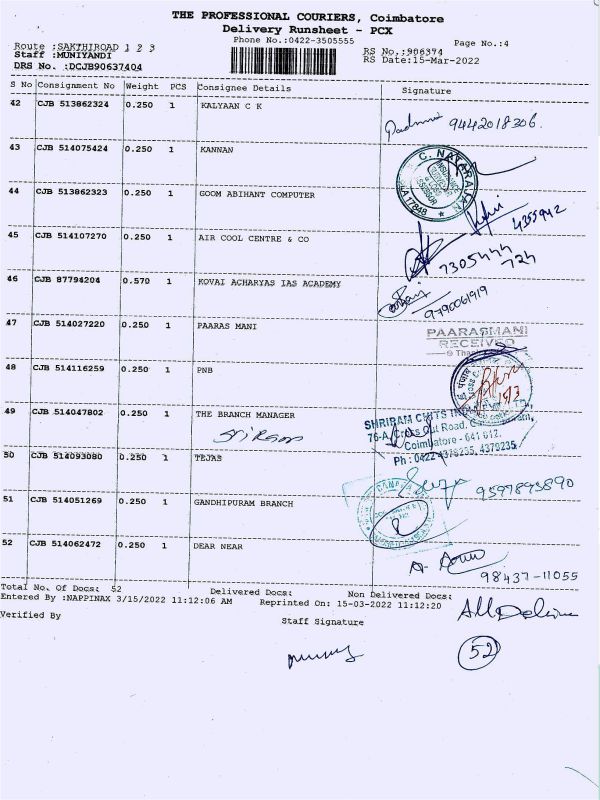 THE PROFESSIONAL COURIERS, Coimbatore
Delivery Runsheet - PCX
Phone No.:0422-3505555
Page No.:4
Route :SAKTHIROAD 1 2 3
Staff :MUNIYANDI
DRS No. :DCJB90637404
RS No.:906374
RS Date:15-Mar-2022
S No Consignment No Weight PCS Consignee Details Signature
42 CJB 513862324 0.250 1 KALYAAN C K
9442018306.
43 CJB 514075424 0.250 1 KANNAN
C. NATARAJAN
44 CJB 513862323 0.250 1 GOOM ABIHANT COMPUTER
4355942
45 CJB 514107270 0.250 1 AIR COOL CENTRE & CO
7305444
724
46 CJB 87794204 0.570 1 KOVAI ACHARYAS IAS ACADEMY
9790061919
47 CJB 514027220 0.250 1 PAARAS MANI
PAARASMANI
RECEIVED
48 CJB 514116259 0.250 1 PNB
15/3
49 CJB 514047802 0.250 1 THE BRANCH MANAGER
Sri Ram
SHRIRAM CHITS
76-A, Cross Cut Road,
Coimbatore - 641 012.
Ph : 0422 4376235, 4379235
50 CJB 514093080 0.250 1 TEJAS
9597893890
51 CJB 514051269 0.250 1 GANDHIPURAM BRANCH
52 CJB 514062472 0.250 1 DEAR NEAR
98437-11055
Total No. Of Docs: 52 Delivered Docs: Non Delivered Docs:
Entered By :NAPPINAX 3/15/2022 11:12:06 AM Reprinted On: 15-03-2022 11:12:20
Verified By Staff Signature
52